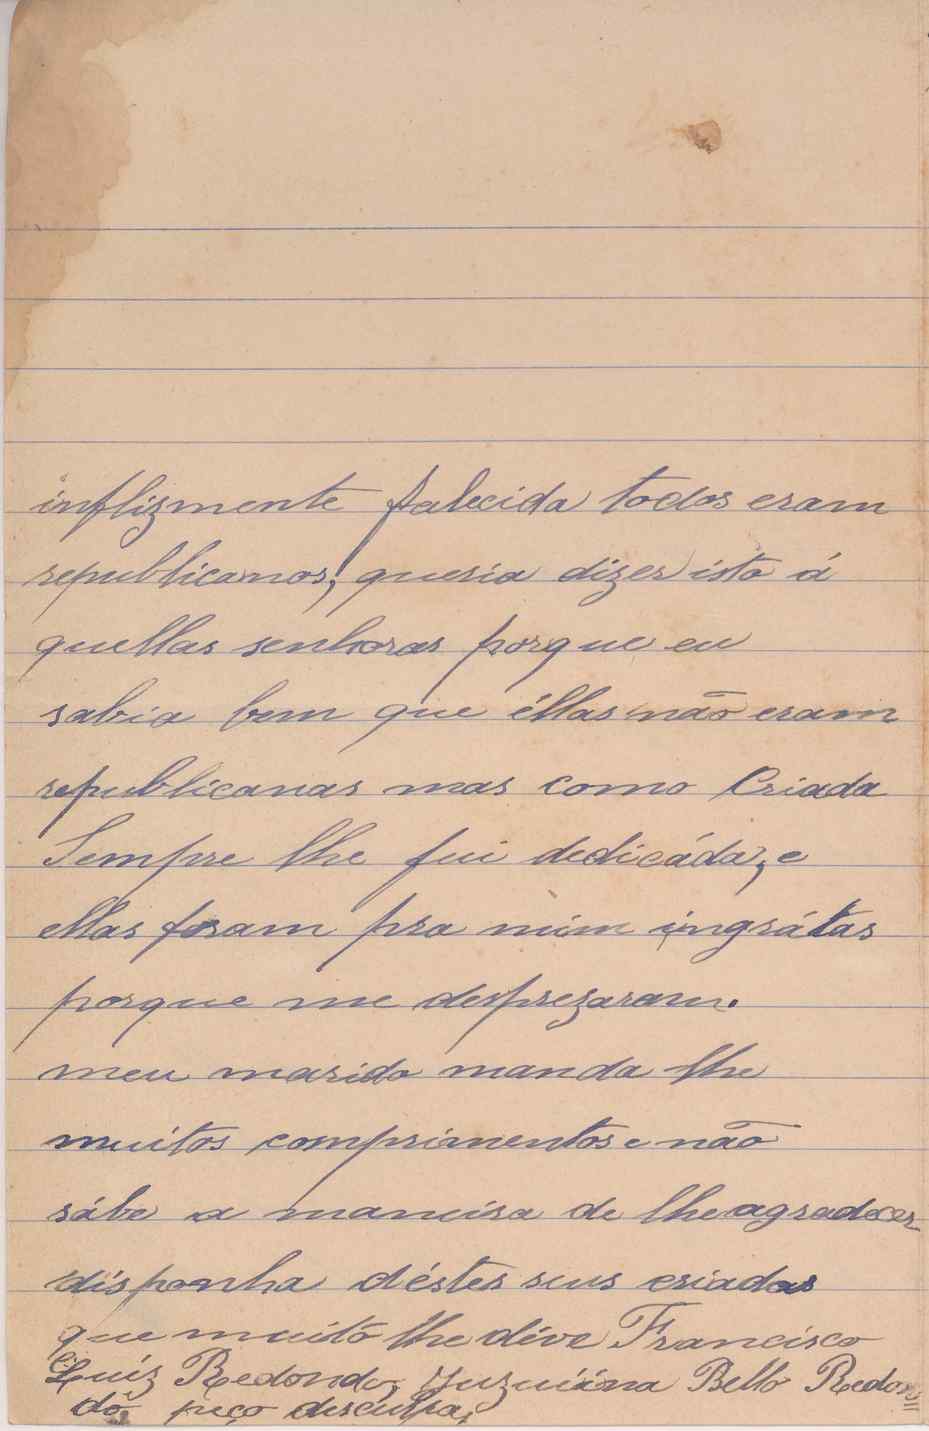 inflizmente falecida todos eram
republicanos; queria dizer isto á
quellas senhoras porque eu
sabia bem que éllas não eram
republicanas mas como Criada
Sempre lhe fui dedicáda, e
ellas foram pra mim ingrátas
porque me desprezaram.
meu marido manda lhe
muitos comprimentos e não
sábe a maneira de lhe agradecer
disponha déstes seus criados
que muito lhe déve Francisco
Luiz Redondo, Bello Redon
dó peço desculpa,